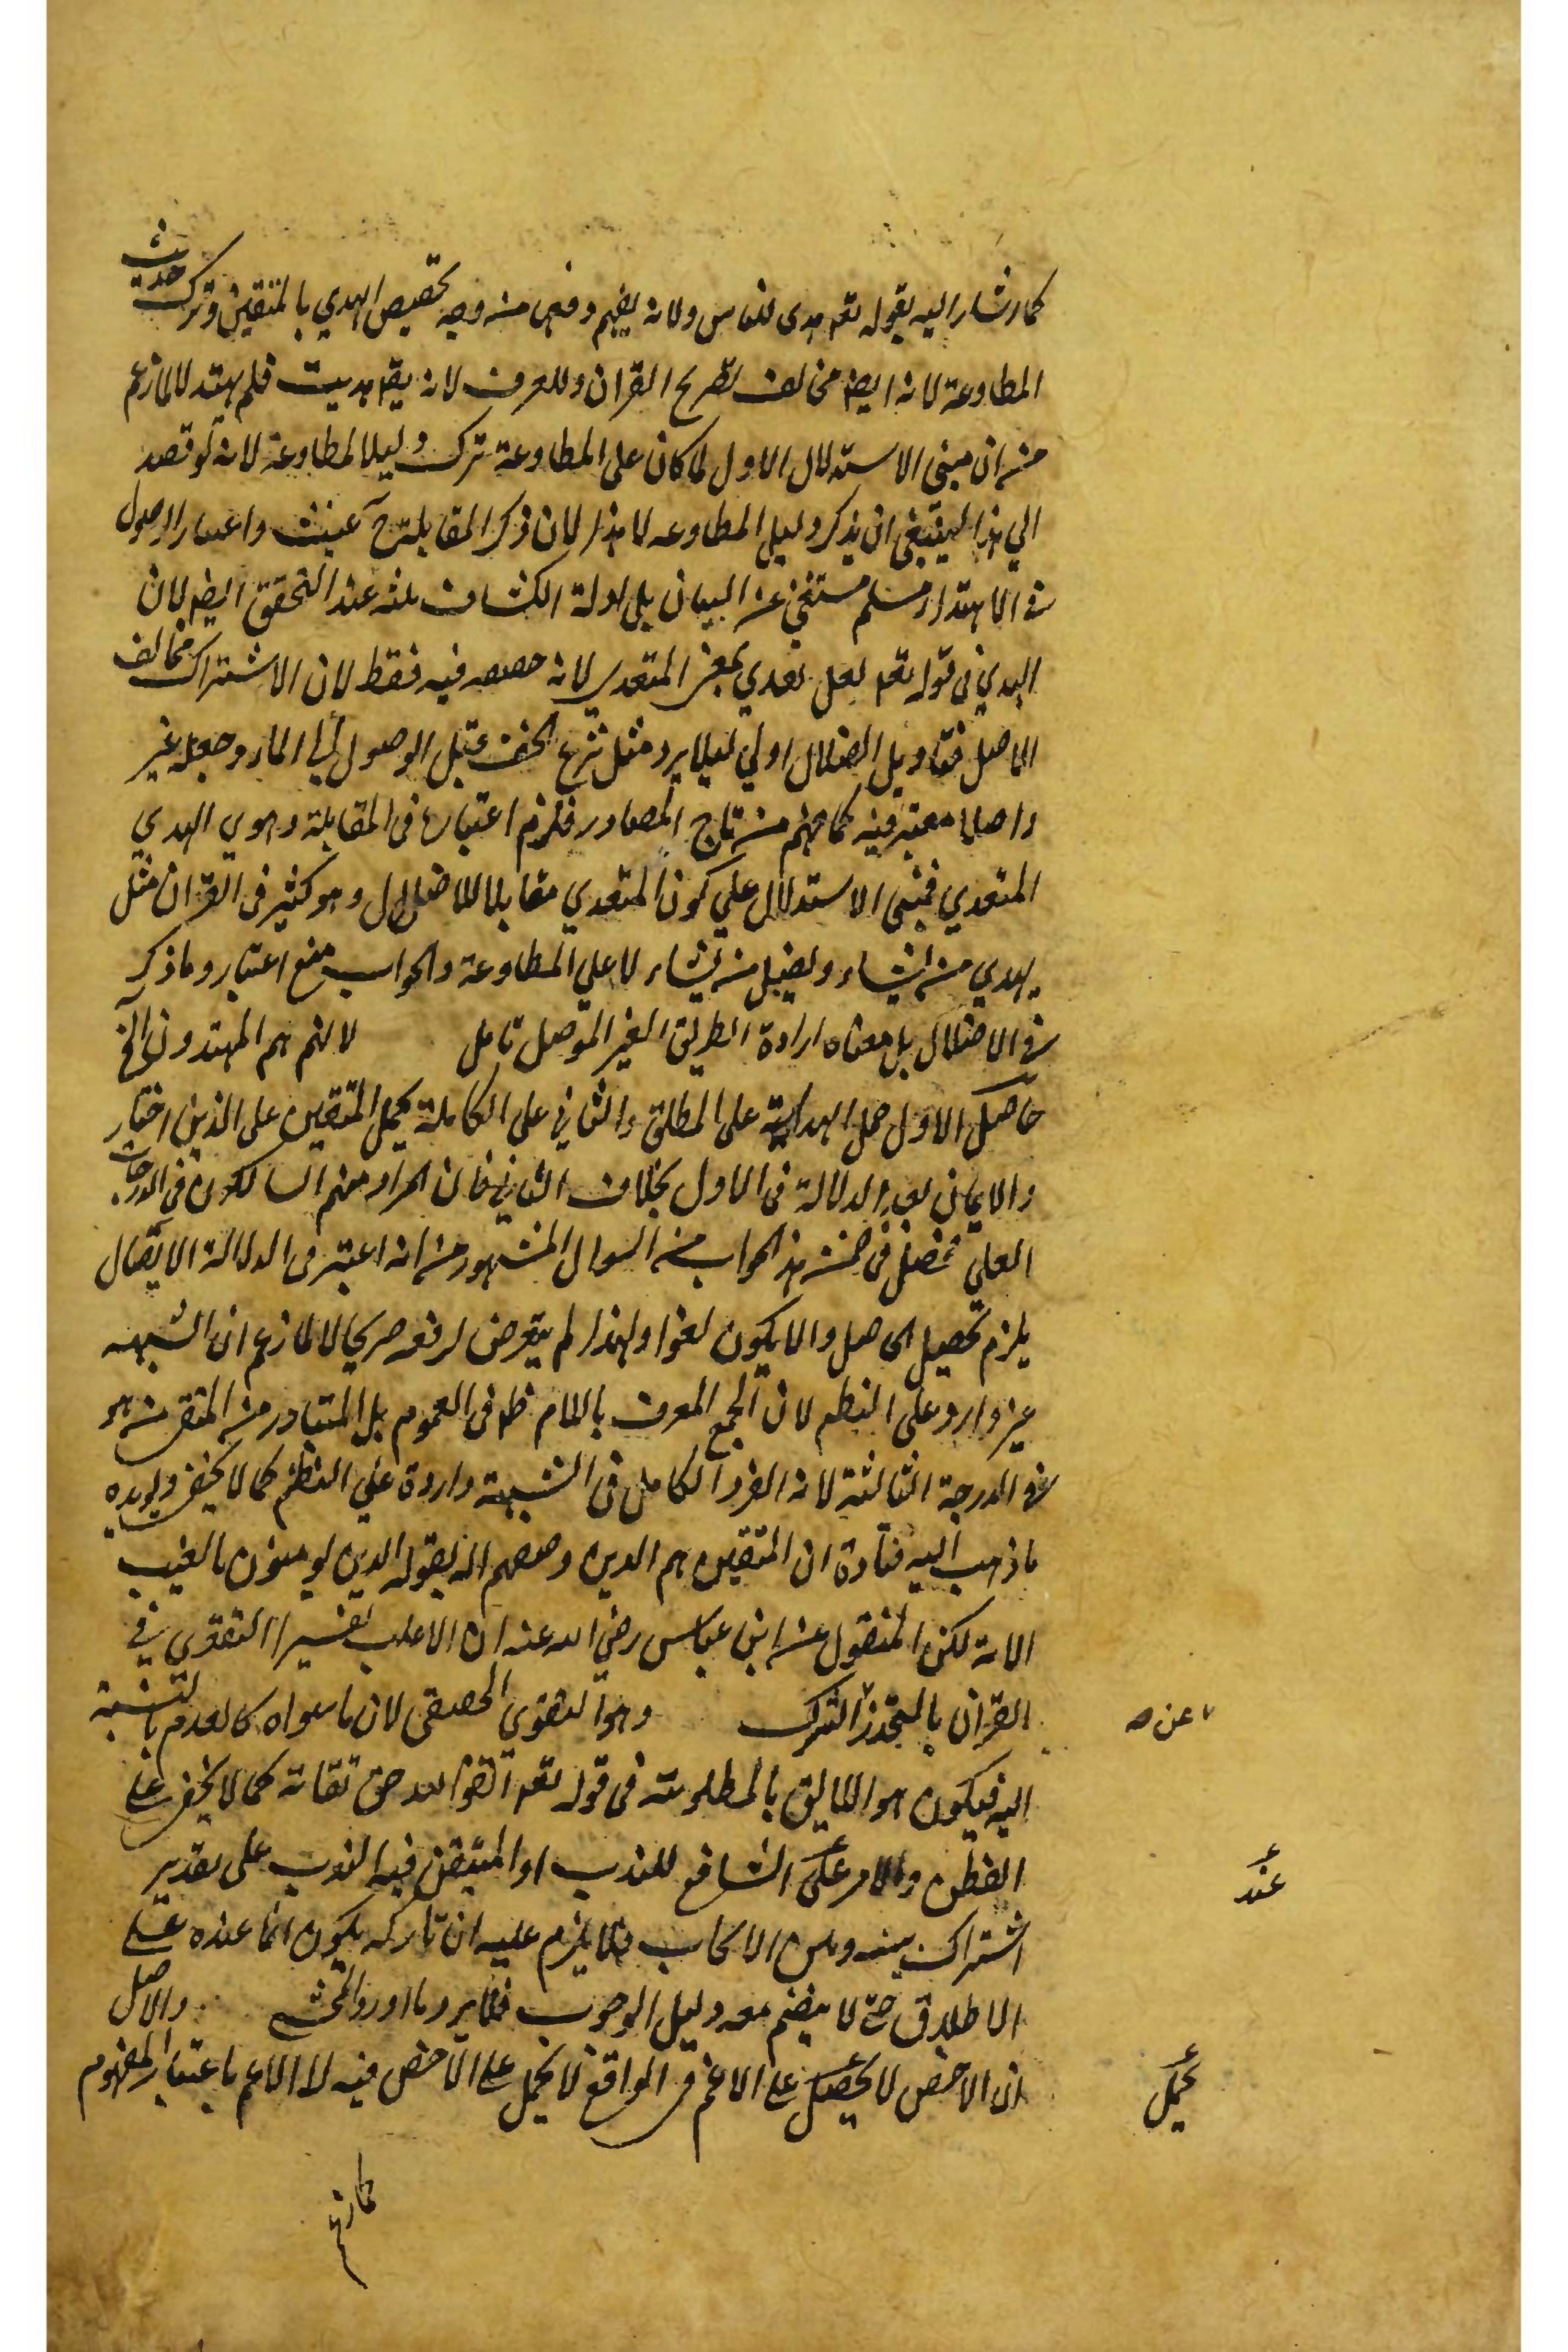 كما اشار اليه بقوله تعم هدى للناس ولانه يفهم وفهم منه وجه تخصيص الهدي بالمتقين وترك حديث
المطاوعة لانه ايضا مخالف لتصريح القران وللعرف لانه يقم هديت فلم يهتد لا لما زعم
من ان مبنى الاستدلال الاول لما كان على المطاوعة ترك دليلا لمطاوعة لانه لو قصد
الي هذا لينبغي ان يذكر دليل المطاوعه لا هذا لان ذكر المقابلة ح عبث واعتبار الوصول
في الاهتداء مسلم مستغن عن البيان بل ادلة الكشاف ثلثه عند التحقق ايضا لان
الهدي في قوله تعم لعلى هدي بمعنى المتعدي لانه حصصه فيه فقط لان الاشتراك مخالف
الاصل فتاويل الضلال اولي ليلا يرد مثل نزع الخف قبل الوصول الي الماء وجعله غير
واصل معتبر فيه كما فهم من تاج المصادر فلزم اعتباره في المقابلة وهوي الهدي
المتعدي فمبنى الاستدلال علي كون المتعدي مقابلا للاضلال وهو كثير في القران مثل
يهدي من يشاء ويضل من يشاء لا علي المطاوعة والجواب منع اعتبار وما ذكر
في الاضلال بل معناه ارادة الطريق الغير الموصل تامل لانهم هم المهتدون الخ
حاصل الاول حمل الهداية على المطلق والثاني على الكاملة بحمل المتقين على الذين اختار
والايمان بعد الدلالة في الاول بخلاف الثاني فان المراد منهم السالكون في الدرجات
العلي فحصل في ضمن هذا الجواب من السوال المشهور من انه اعتبر في الدلالة الايصال
يلزم تحصيل الحاصل والا يكون لغوا ولهذا لم يتعرض لرفعه صريحا لا لما زعم ان الشبهه
غير وارد على النظم لان الجمع المعرف باللام ظم في العموم بل المتبادر من المتقي من هو
في الدرجة الثالثة لانه الفرد الكامل في الشبهة واردة علي النظم كما لا يخفى ويويده
ما ذهب اليه قتادة ان المتقين هم الدين وصفهم الله بقوله الدين يومنون بالغيب
الاية لكن المنقول عن ابن عباس رضي الله عنه ان الاغلب تفسير التقوي في
القران بالتحذر الشرك وهو التقوي الحقيقي لان ما سواه كالعدم بالنسبة
عن صح
اليه فيكون هو اللايق بالمطلوبية في قوله تعم اتقوا الله حق تقاته كما لا يخفى على
الفطن والامر عند الشافع للندب او المتيقن فيه الندب على تقدير
عند
اشتراك بينه وبين الايجاب فلا يلزم عليه ان تاركه يكون اثما عنده على
الاطلاق حتى لا ينضم معه دليل الوجوب فلا يرد ما اورد المحشى والاصل
ان الاخص لا يحصل على الاعم في الواقع لا يحمل على الاخص فيه لا الاعم باعتبار المفهوم
يحمل
كما زعم